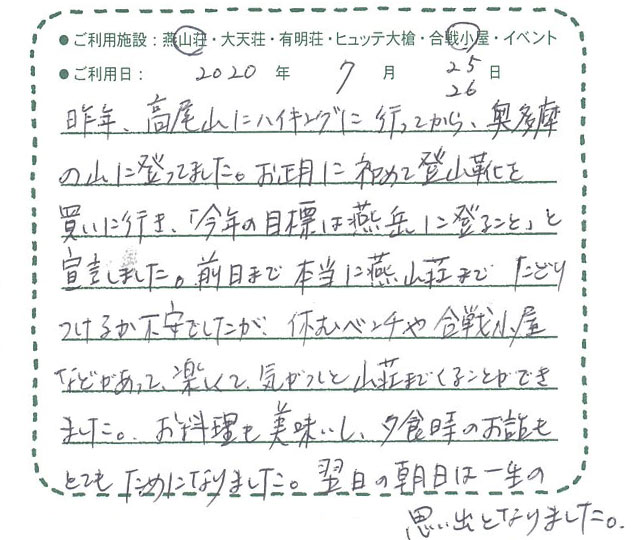 ●ご利用施設：燕山荘・大天荘・有明荘・ヒュッテ大槍・合戦小屋・イベント
●ご利用日： 2020 年 7 月 25 日
26
昨年、高尾山にハイキングに行ってから、奥多摩
の山に登ってました。お正月に初めて登山靴を
買いに行き、「今年の目標は燕岳に登ること」と
宣言しました。前日まで本当に燕山荘までたどり
つけるか不安でしたが、休むベンチや合戦小屋
などがあって、楽しくて、気がつくと山荘までくることができ
ました。お料理も美味いし、夕食時のお話も
とてもためになりました。翌日の朝日は一生の
思い出となりました。